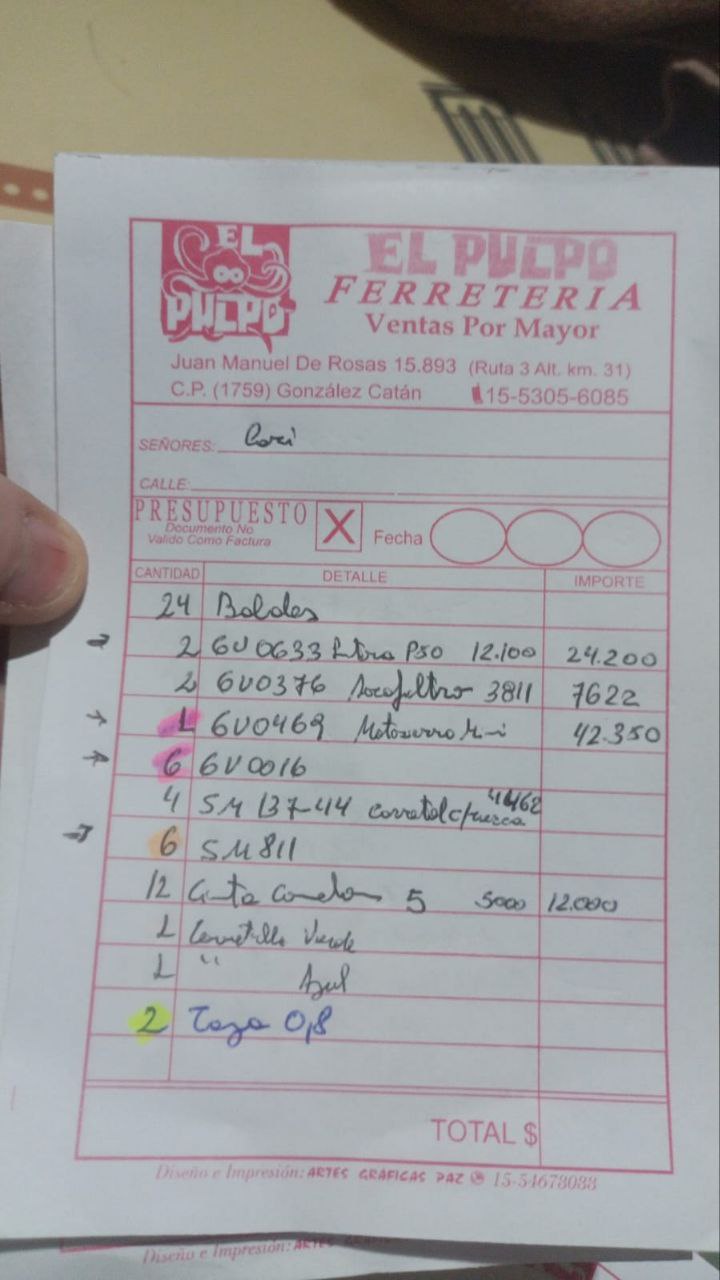 EL PULPO
EL PULPO
FERRETERIA
Ventas Por Mayor
Juan Manuel De Rosas 15.893 (Ruta 3 Alt. km. 31)
C.P. (1759) González Catán 15-5305-6085
SEÑORES:
CALLE:
PRESUPUESTO X Fecha
Documento No
Valido Como Factura
CANTIDAD DETALLE IMPORTE
24 Baldes
2 6V0633 P50 12.100 24.200
2 6V0376 3811 7622
1 6V0469 Motosierra 42.350
6 6V0016
4 SM 137-44
6 SM 811
12 Cinta 5 5000 12.000
1 Carretilla Verde
1 " Azul
2 Taza 0,8
TOTAL $
Diseño e Impresión: ARTES GRAFICAS PAZ 15-54678088
Diseño e Impresión: